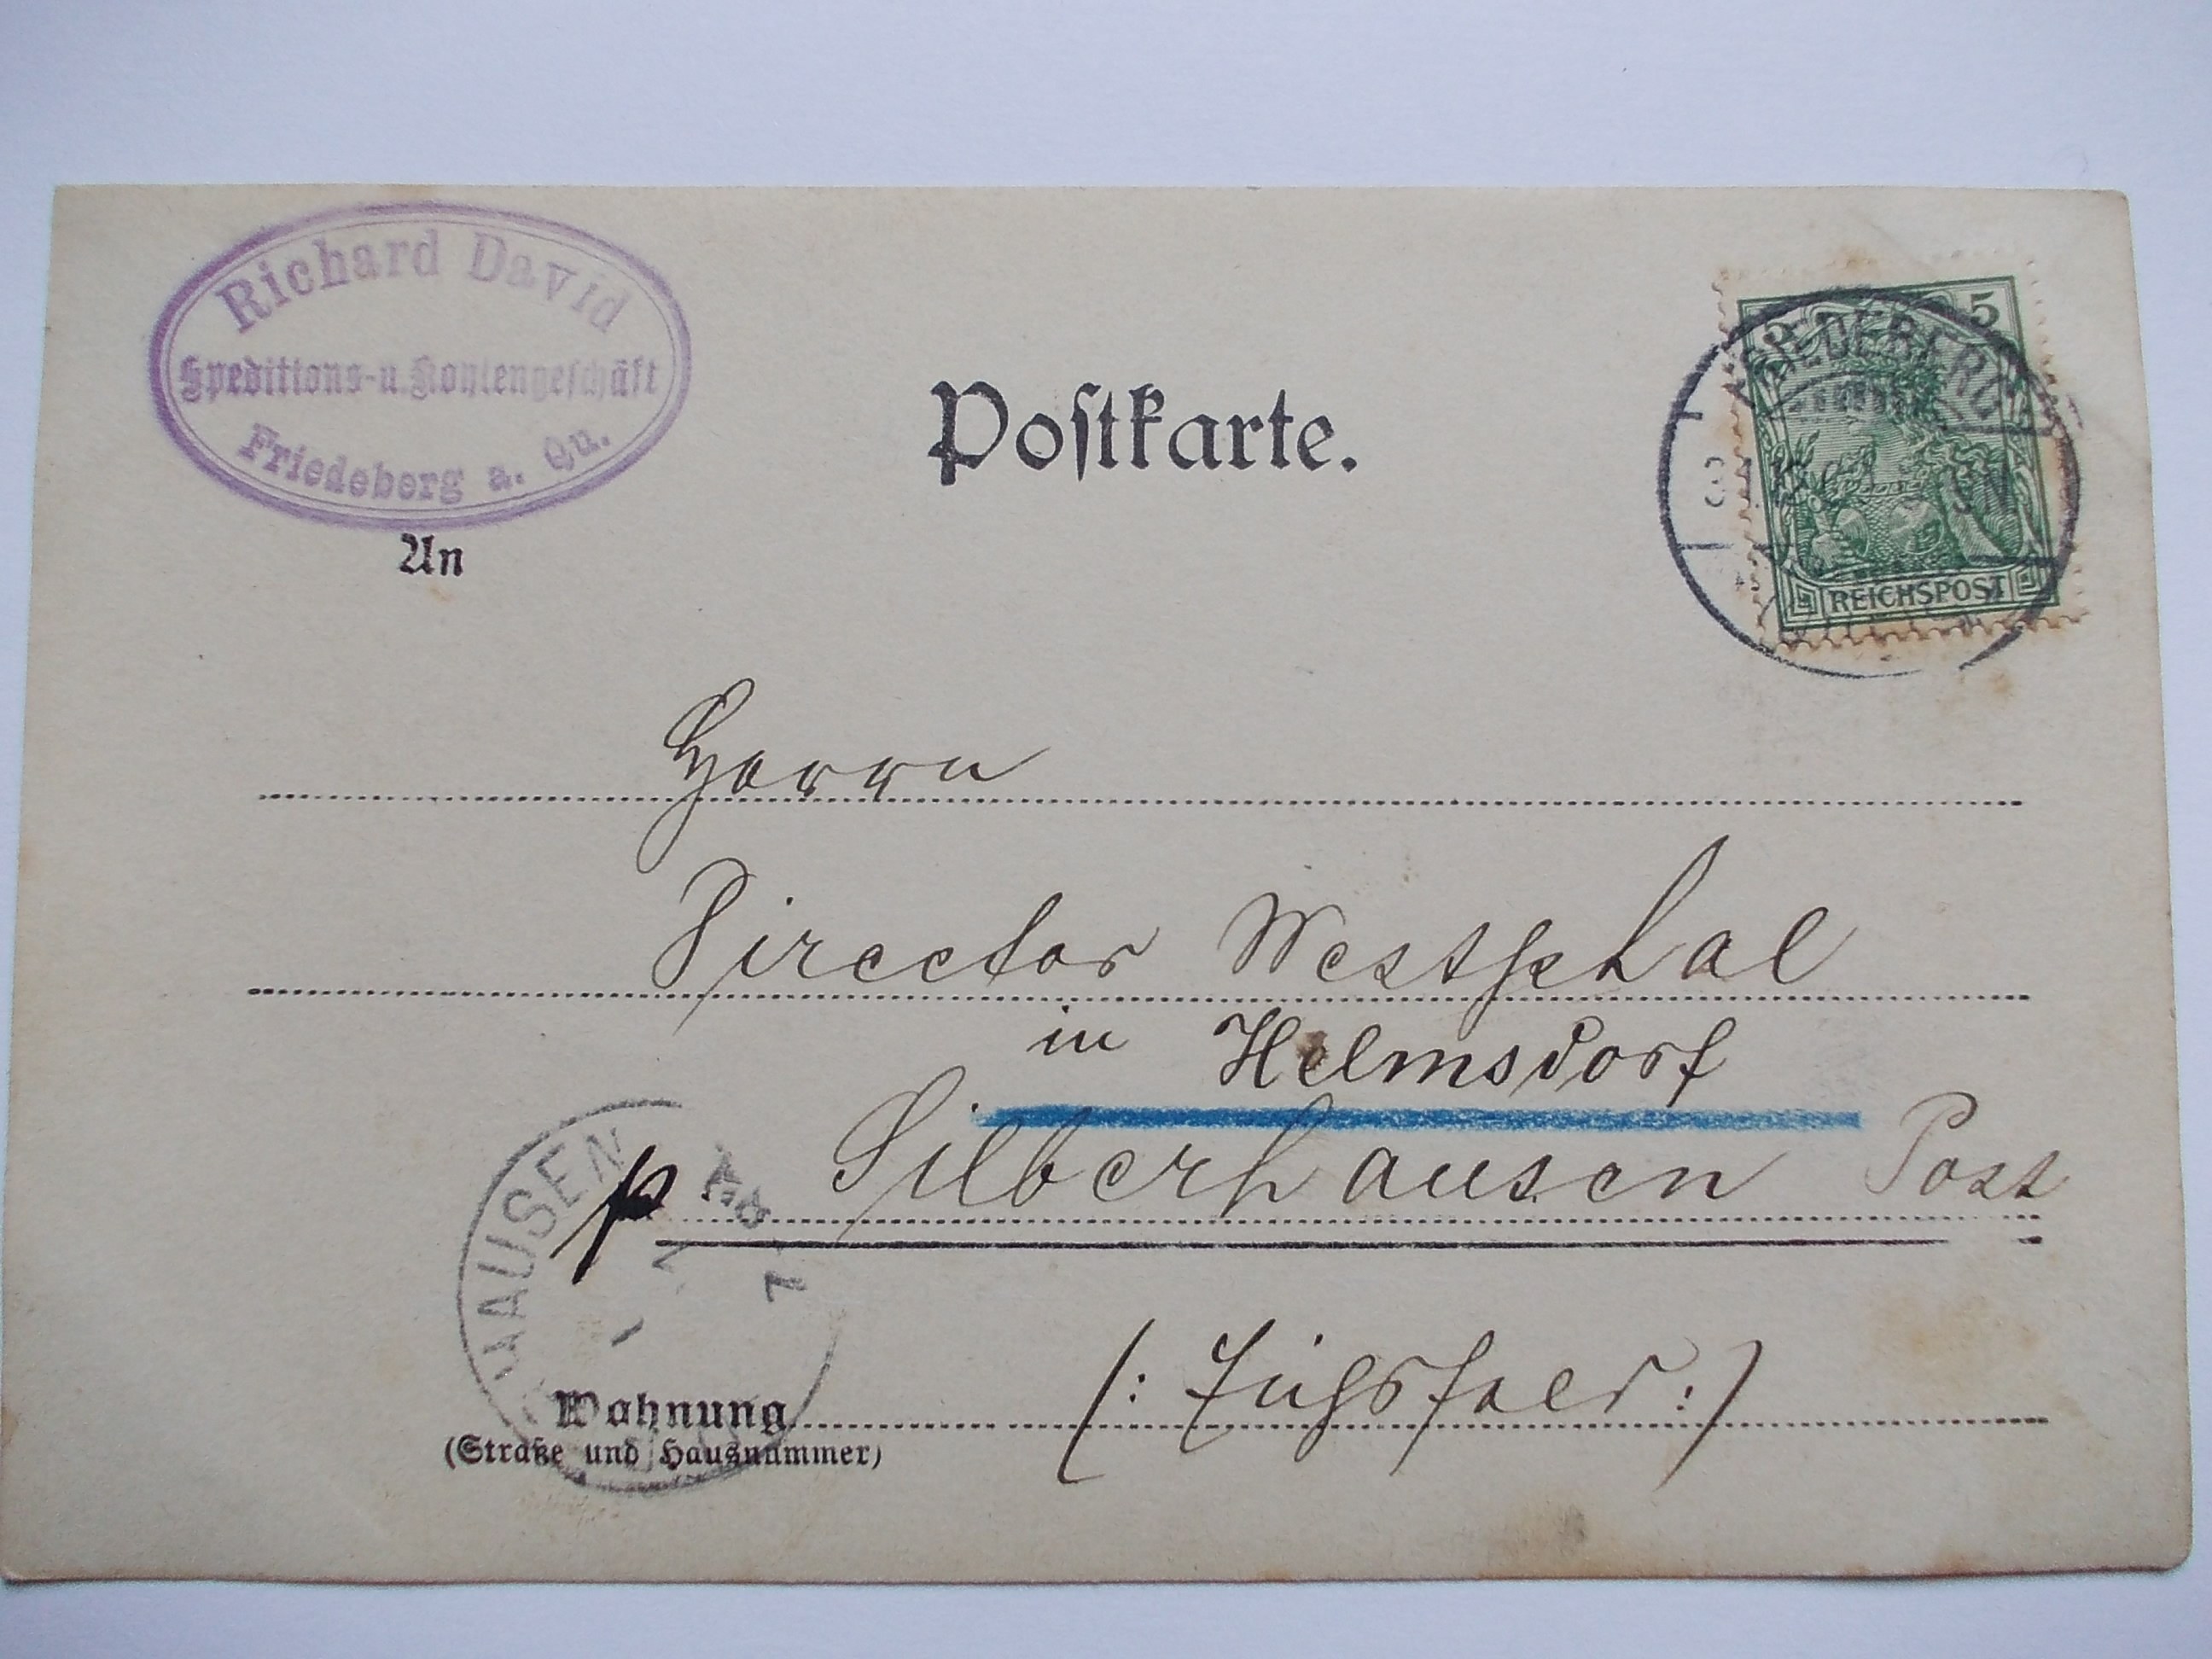 Richard David
Speditions-u. Kohlengeschäft
Friedeberg a. Qu.
Postkarte.
5 5
FRIEDEBERG
REICHSPOST
An
Herrn
Director Westphal
in Helmsdorf
p. Silberhausen Post
HAUSEN
(: Eichsfeld :)
Wohnung
(Straße und Hausnummer)